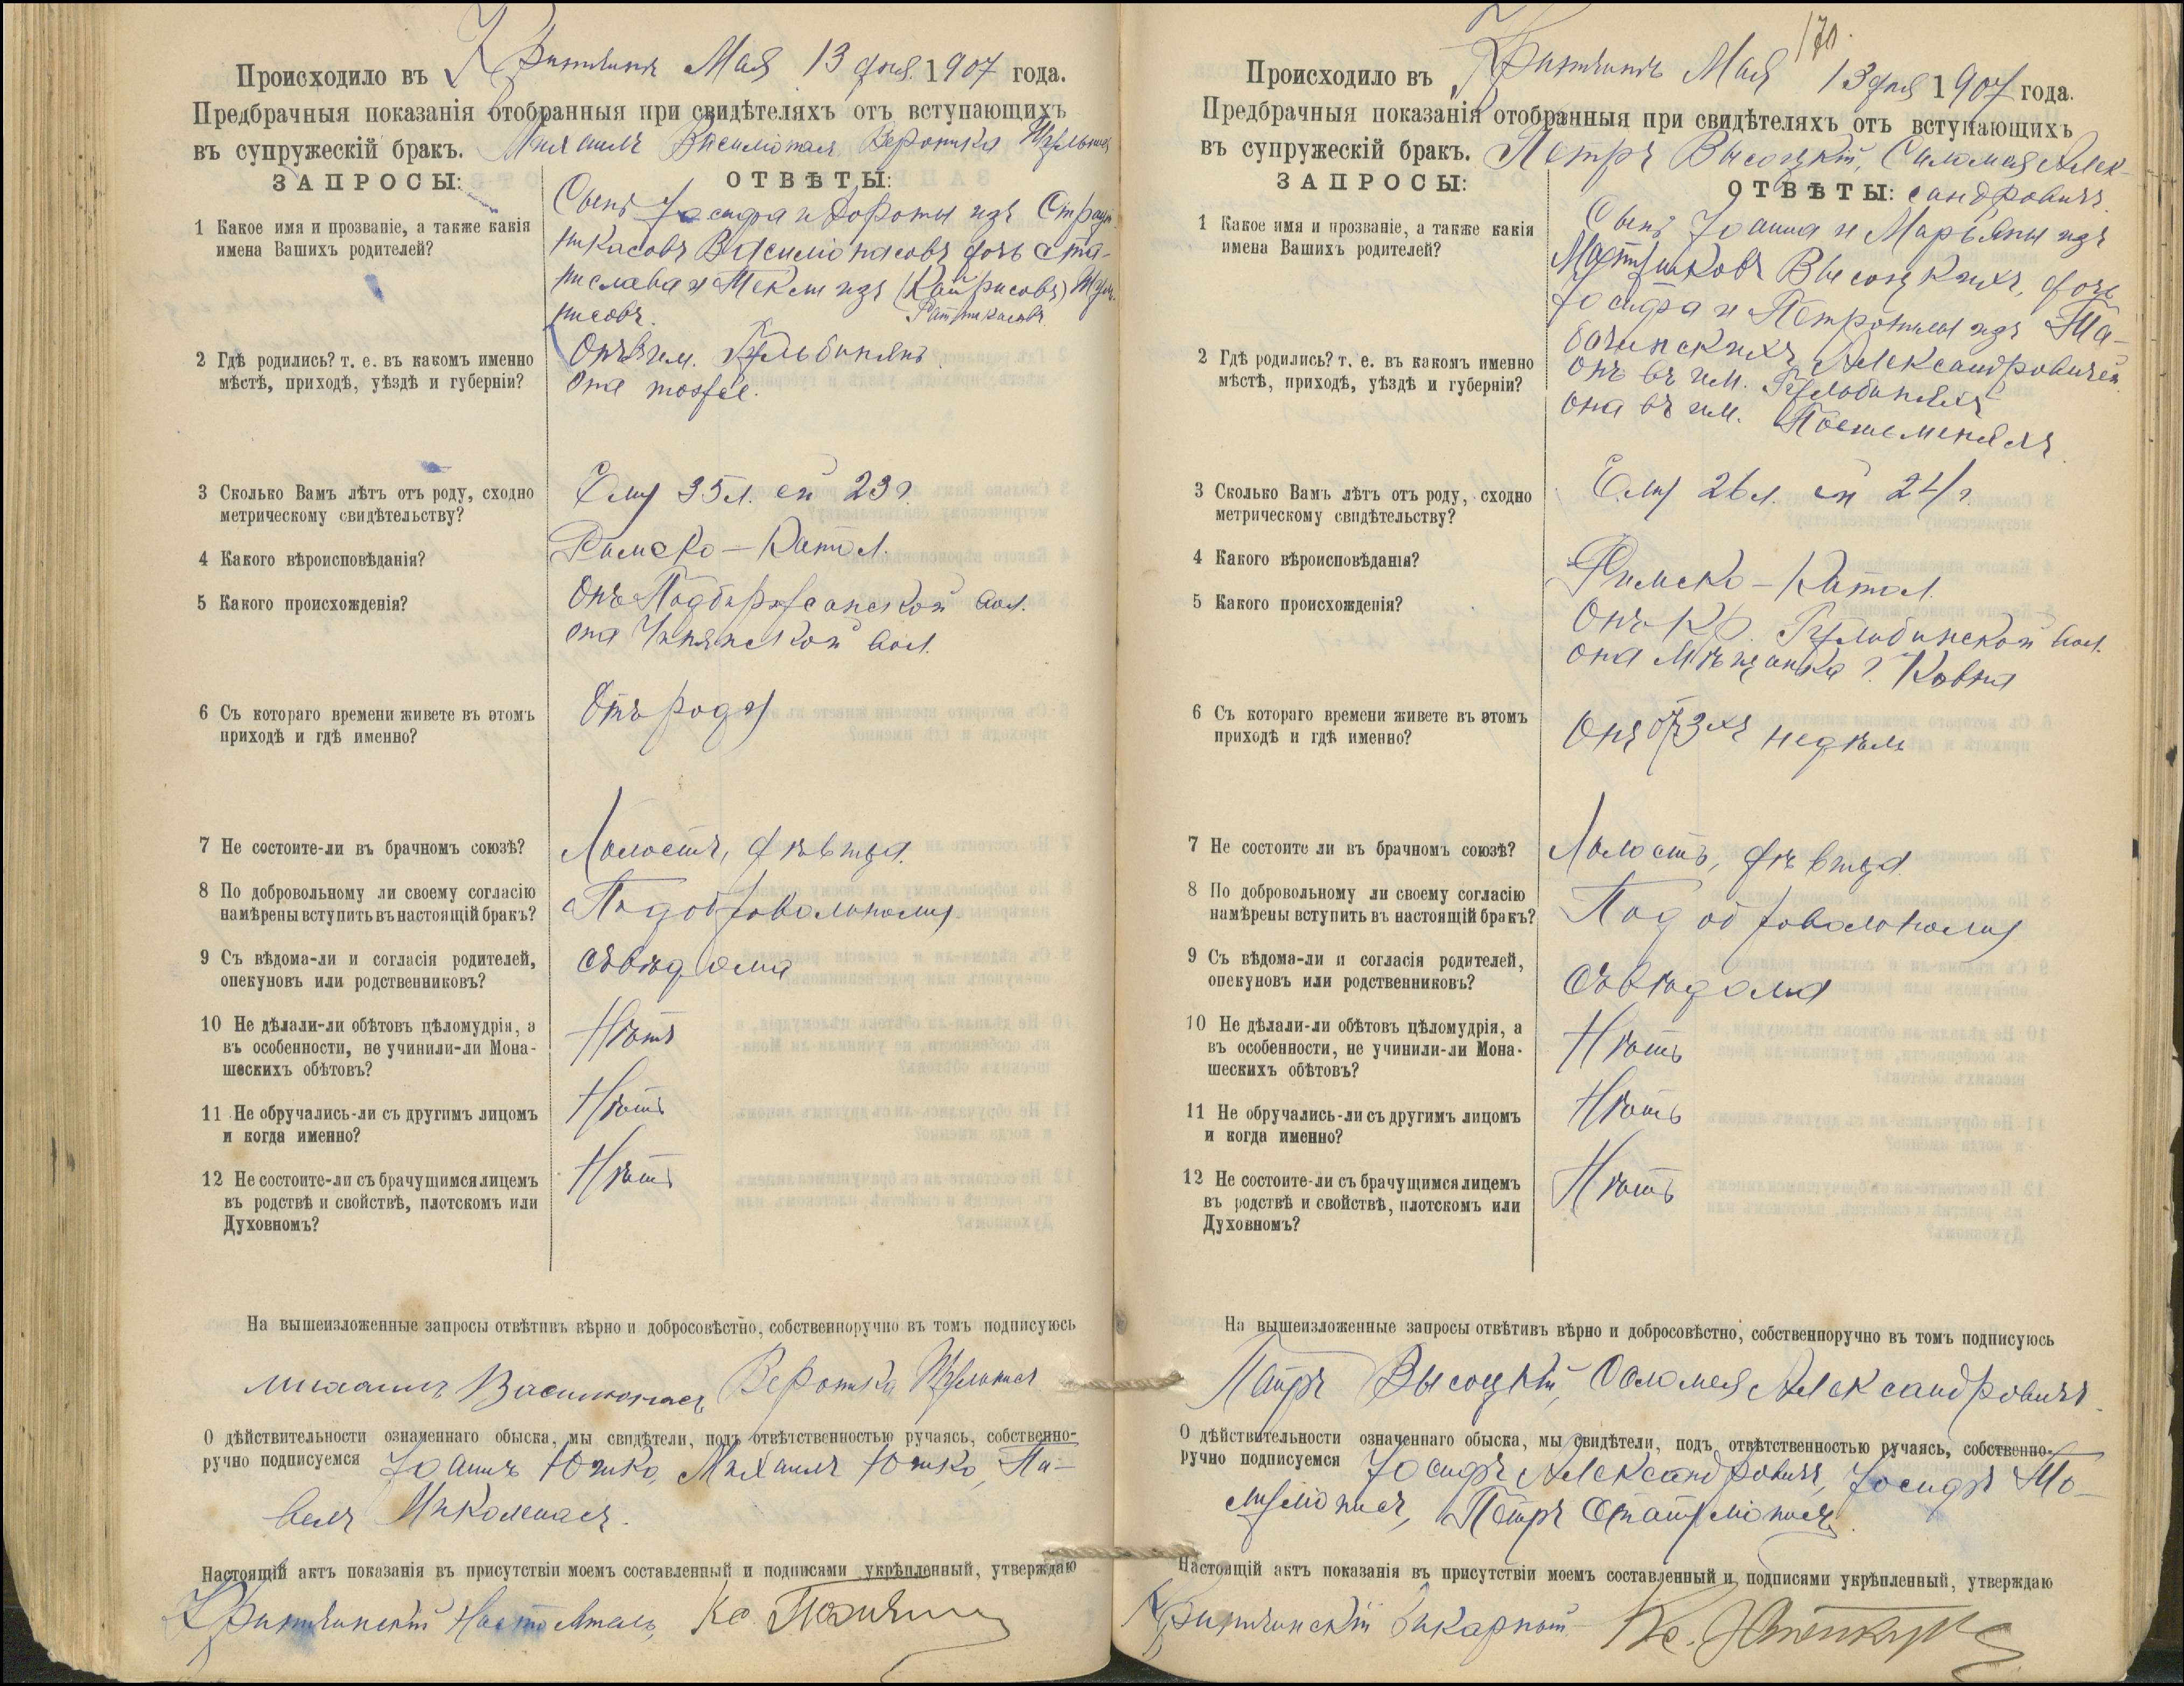 Происходило въ Мая 13 дня 1907 года.
Предбрачныя показанія отобранныя при свидѣтеляхъ отъ вступающихъ
въ супружескій бракъ. Михаилъ Василіонасъ Вероника
ЗАПРОСЫ:
ОТВѢТЫ:
1 Какое имя и прозваніе, а также какія
имена Вашихъ родителей?
Сынъ Іосифа и Дороты изъ
Василіонасовъ дочь Ста-
нислава и Теклы изъ
2 Гдѣ родились? т. е. въ какомъ именно
мѣстѣ, приходѣ, уѣздѣ и губерніи?
Онъ въ им.
Она тоже.
3 Сколько Вамъ лѣтъ отъ роду, сходно
метрическому свидѣтельству?
Ему 35 л. ей 23 г.
4 Какого вѣроисповѣданія?
Римско-Катол.
5 Какого происхожденія?
Онъ вол.
она вол.
6 Съ котораго времени живете въ этомъ
приходѣ и гдѣ именно?
Отъ роду
7 Не состоите-ли въ брачномъ союзѣ?
Холостъ, дѣвица.
8 По добровольному ли своему согласію
намѣрены вступить въ настоящій бракъ?
По добровольному.
9 Съ вѣдома-ли и согласія родителей,
опекуновъ или родственниковъ?
Съ вѣдома
10 Не дѣлали-ли обѣтовъ цѣломудрія, а
въ особенности, не учинили-ли Мона-
шескихъ обѣтовъ?
Нѣтъ
11 Не обручались-ли съ другимъ лицомъ
и когда именно?
Нѣтъ
12 Не состоите-ли съ брачущимся лицемъ
въ родствѣ и свойствѣ, плотскомъ или
Духовномъ?
Нѣтъ
На вышеизложенные запросы отвѣтивъ вѣрно и добросовѣстно, собственноручно въ томъ подписуюсь
Михаилъ Василіонасъ, Вероника
О дѣйствительности означеннаго обыска, мы свидѣтели, подъ отвѣтственностью ручаясь, собственно-
ручно подписуемся Іоаннъ Юшко, Михаилъ Юшко, Па-
велъ
Настоящій актъ показанія въ присутствіи моемъ составленный и подписами укрѣпленный, утверждаю
Настоятель, Кс.
170.
Происходило въ Мая 13 дня 1907 года.
Предбрачныя показанія отобранныя при свидѣтеляхъ отъ вступающихъ
въ супружескій бракъ. Петръ Высоцкій, Саломея Алек-
ЗАПРОСЫ:
ОТВѢТЫ: сандровичъ
1 Какое имя и прозваніе, а также какія
имена Вашихъ родителей?
Сынъ Іоанна и Марьяны изъ
Высоцкихъ, дочь
Іосифа и Петронелы изъ
Александровичей
2 Гдѣ родились? т. е. въ какомъ именно
мѣстѣ, приходѣ, уѣздѣ и губерніи?
Онъ въ им.
она въ им.
3 Сколько Вамъ лѣтъ отъ роду, сходно
метрическому свидѣтельству?
Ему 26 л. ей 24 г.
4 Какого вѣроисповѣданія?
Римско-Катол.
5 Какого происхожденія?
Онъ кр. вол.
она мѣщанка г. Ковна
6 Съ котораго времени живете въ этомъ
приходѣ и гдѣ именно?
Онъ отъ 3хъ недѣль
7 Не состоите ли въ брачномъ союзѣ?
Холостъ, дѣвица.
8 По добровольному ли своему согласію
намѣрены вступить въ настоящій бракъ?
По добровольному
9 Съ вѣдома-ли и согласія родителей,
опекуновъ или родственниковъ?
Съ вѣдома
10 Не дѣлали-ли обѣтовъ цѣломудрія, а
въ особенности, не учинили-ли Мона-
шескихъ обѣтовъ?
Нѣтъ
11 Не обручались-ли съ другимъ лицомъ
и когда именно?
Нѣтъ
12 Не состоите-ли съ брачущимся лицемъ
въ родствѣ и свойствѣ, плотскомъ или
Духовномъ?
Нѣтъ
На вышеизложенные запросы отвѣтивъ вѣрно и добросовѣстно, собственноручно въ томъ подписуюсь
Петръ Высоцкій, Саломея Александровичъ.
О дѣйствительности означеннаго обыска, мы свидѣтели, подъ отвѣтственностью ручаясь, собственно-
ручно подписуемся Іосифъ Александровичъ, Іосифъ
Петръ
Настоящій актъ показанія въ присутствіи моемъ составленный и подписями укрѣпленный, утверждаю
Викарный Кс.